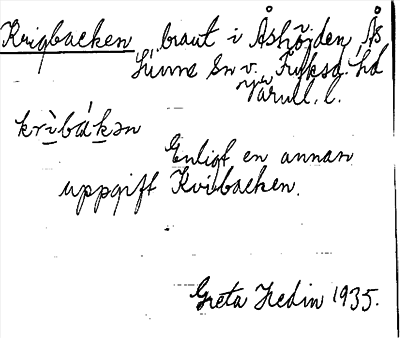 Krigbacken, braut i Åshöjden, Ås
Sunne sn v. Fryksd. hd
Värml. l.
krìbákən
Enligt en annan
uppgift Kvibacken.
Greta Hedin 1935.